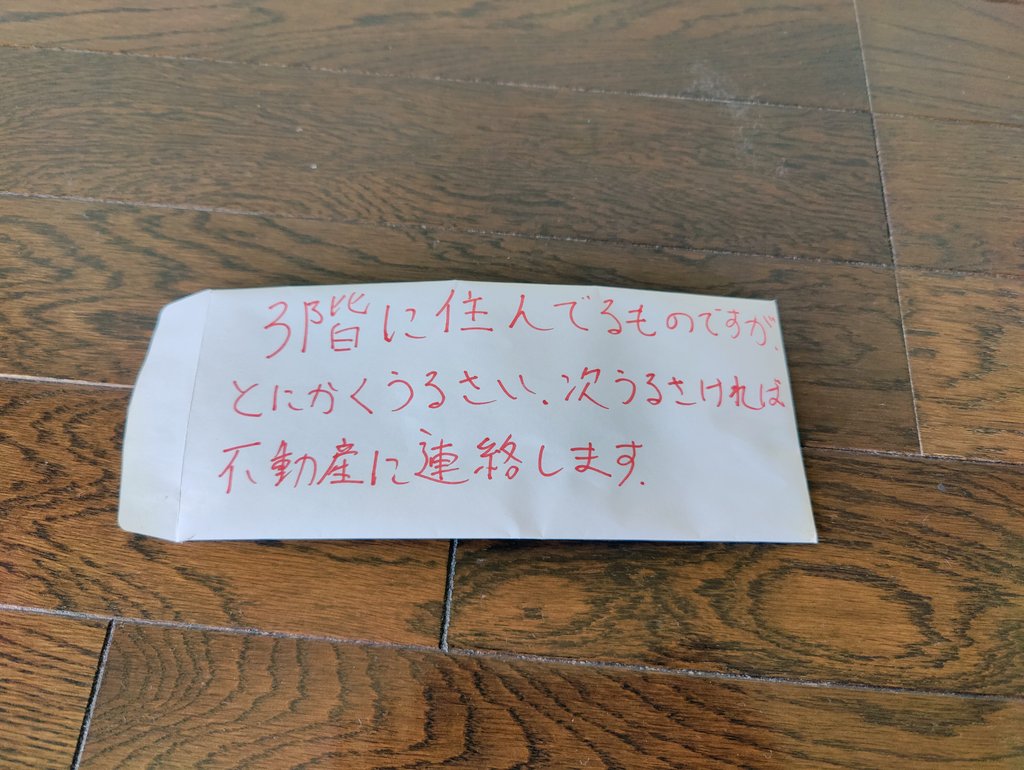 3階に住んでるものですが、
とにかくうるさい、次うるさければ
不動産に連絡します.